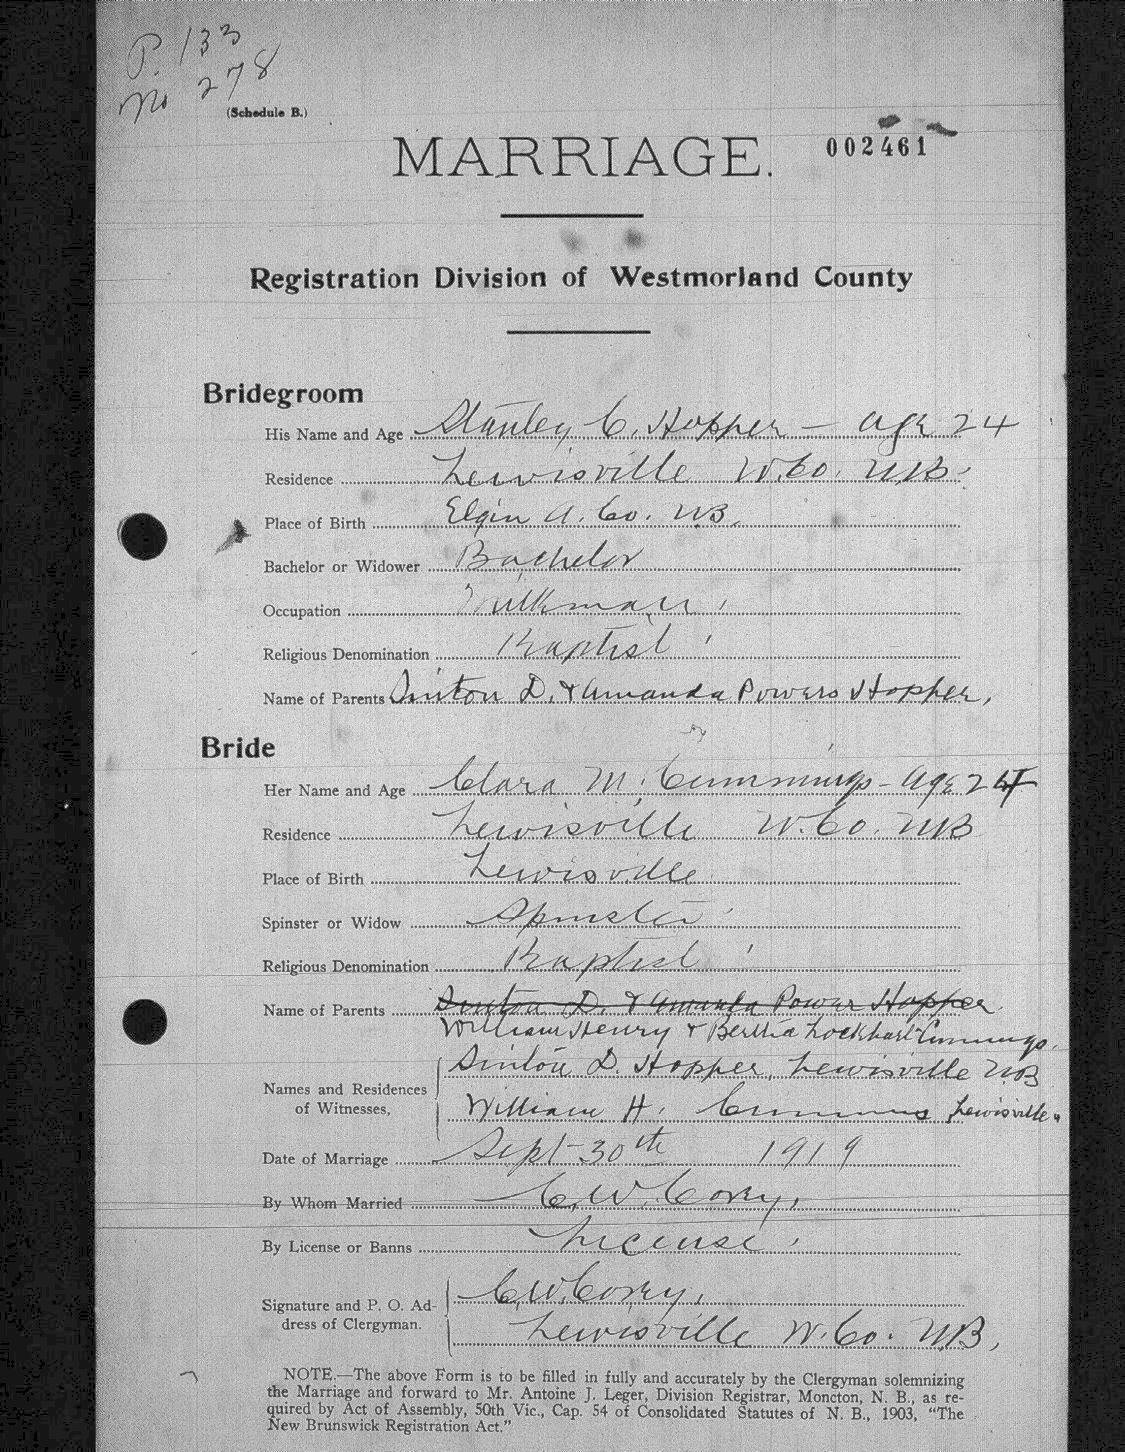 P. 133
No 278
(Schedule B.)
MARRIAGE.
002461
Registration Division of Westmorland County
Bridegroom
His Name and Age Stanley C. Hopper - age 24
Residence Lewisville W. Co. N.B.
Place of Birth Elgin A. Co. N.B.
Bachelor or Widower Bachelor
Occupation Milkman
Religious Denomination Baptist
Name of Parents Sinton D. & Amanda Powers Hopper,
Bride
Her Name and Age Clara M. Cummings - Age 24
Residence Lewisville W. Co. N.B
Place of Birth Lewisville
Spinster or Widow Spinster
Religious Denomination Baptist
Name of Parents Sinton D. & Amanda Power Hopper
William Henry & Bertha Lockhart Cummings.
Names and Residences of Witnesses,
Sinton D. Hopper, Lewisville N.B
William H. Cummings Lewisville.
Date of Marriage Sept 30th 1919
By Whom Married C. W. Corey,
By License or Banns License
Signature and P. O. Ad-
dress of Clergyman.
C. W. Corey,
Lewisville W. Co. N.B,
NOTE.—The above Form is to be filled in fully and accurately by the Clergyman solemnizing
the Marriage and forward to Mr. Antoine J. Leger, Division Registrar, Moncton, N. B., as re-
quired by Act of Assembly, 50th Vic., Cap. 54 of Consolidated Statutes of N. B., 1903, “The
New Brunswick Registration Act.”